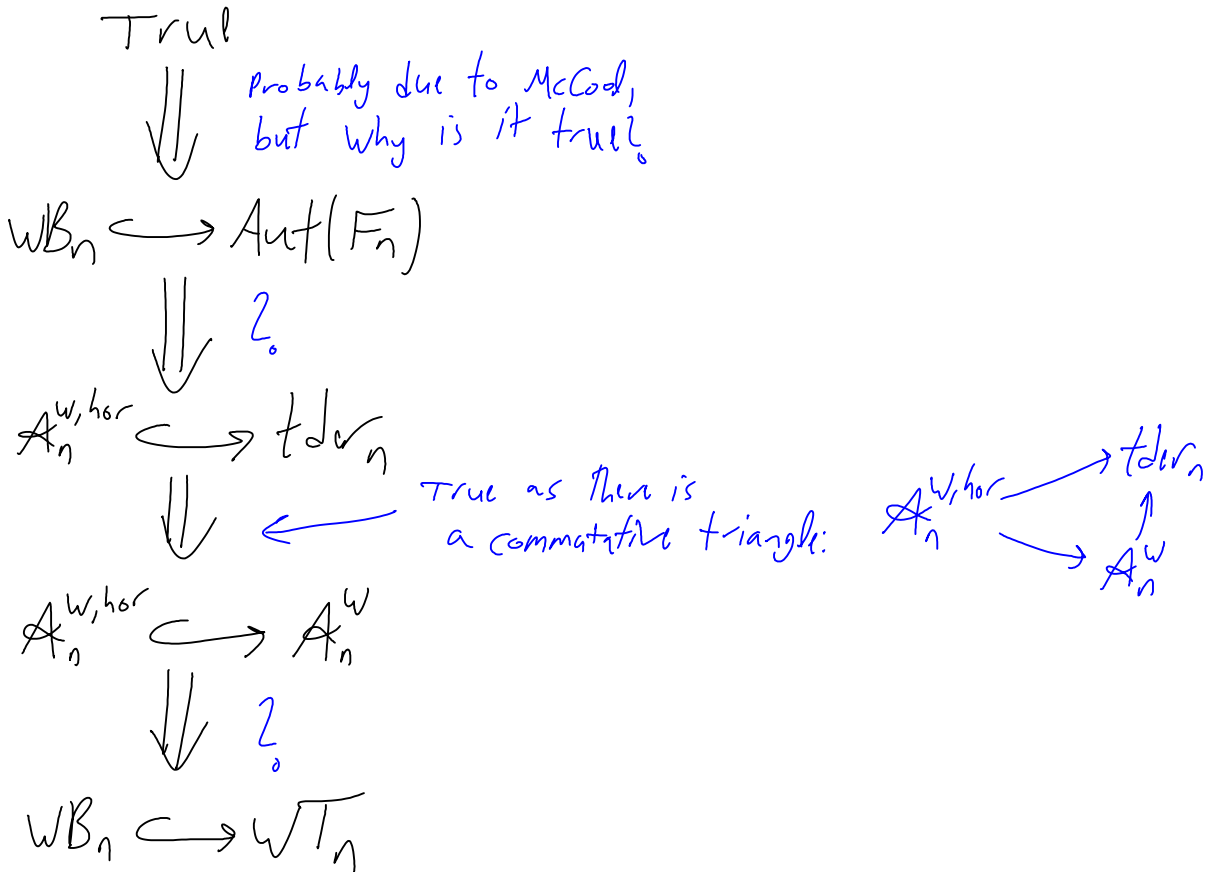 True
Probably due to McCool,
but why is it true?
wB_n ↪ Aut(F_n)
?
A_n^{w,hor} ↪ tder_n
True as there is
a commutative triangle:
A_n^{w,hor} → tder_n
→ A_n^w ↑
A_n^{w,hor} ↪ A_n^w
?
wB_n ↪ wT_n